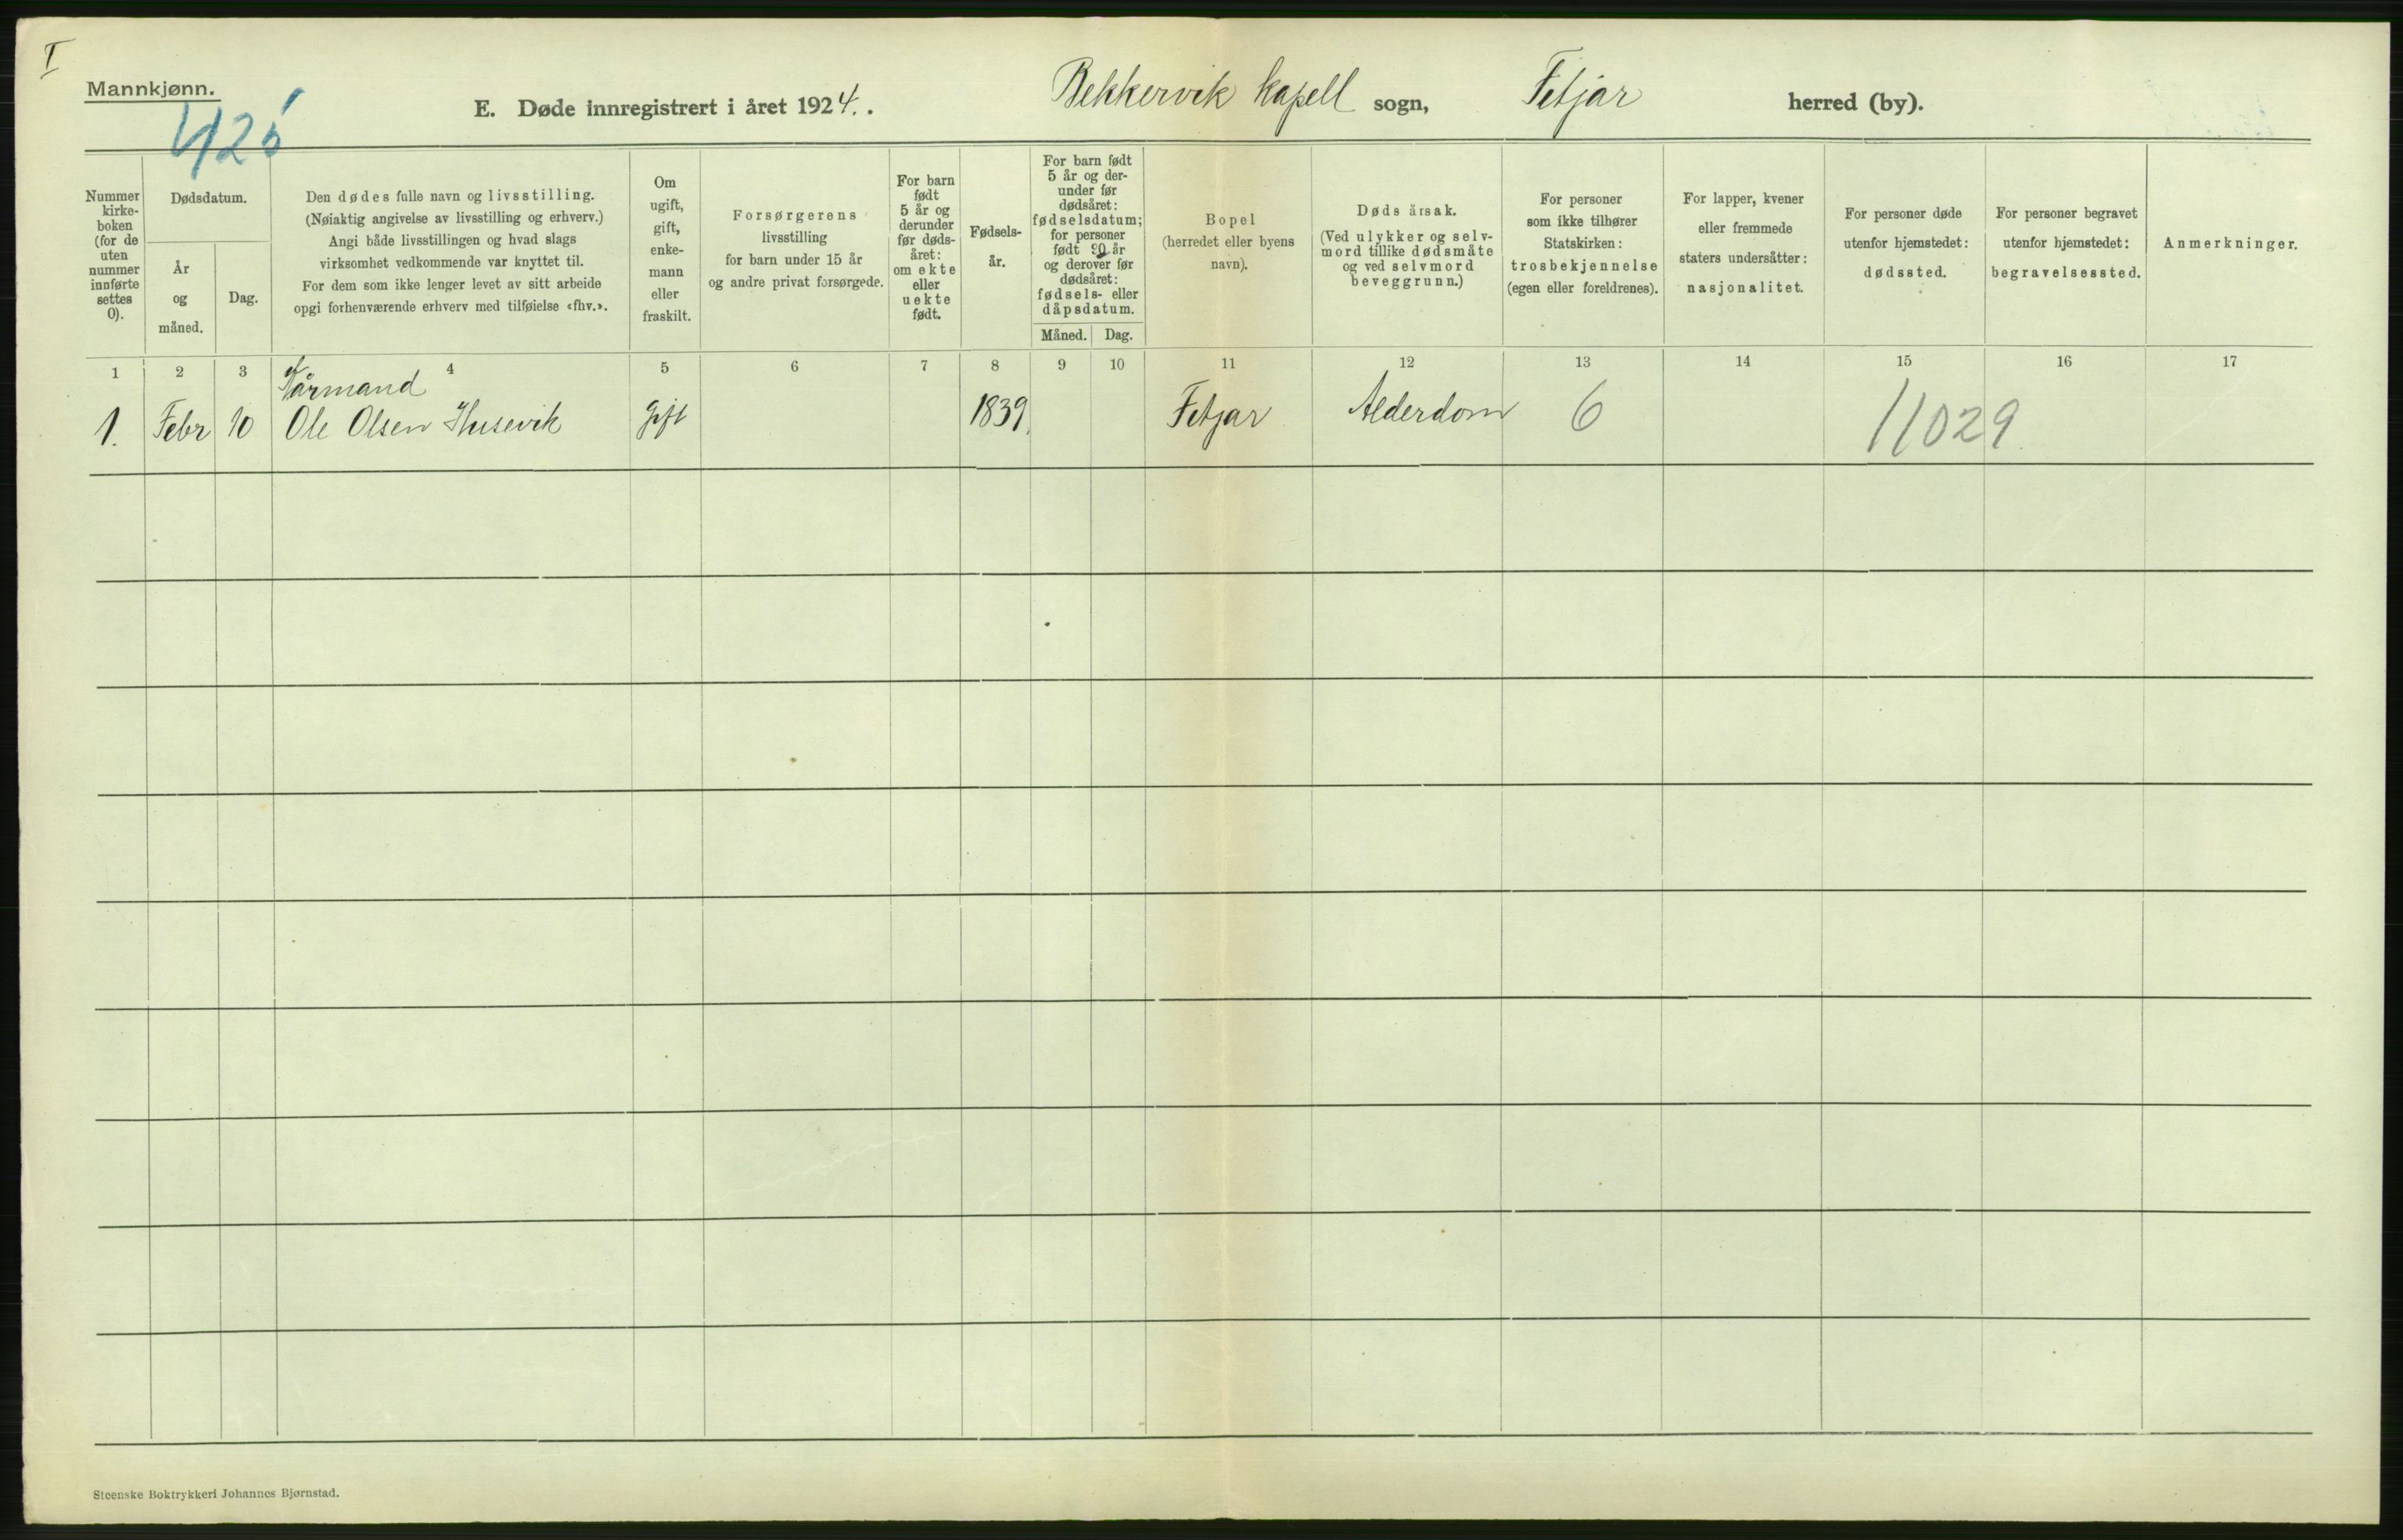 I
Mannkjønn.
425
E. Døde innregistrert i året 1924. .
Bekkervik Kapell sogn, Fitjar herred (by).
Nummer
kirke-
boken
(for de
uten
nummer
innførte
settes
0).
Dødsdatum.
År
og
måned.
Dag.
Den dødes fulle navn og livsstilling.
(Nøiaktig angivelse av livsstilling og erhverv.)
Angi både livsstillingen og hvad slags
virksomhet vedkommende var knyttet til.
For dem som ikke lenger levet av sitt arbeide
opgi forhenværende erhverv med tilføielse «fhv.».
Om
ugift,
gift,
enke-
mann
eller
fraskilt.
Forsørgerens
livsstilling
for barn under 15 år
og andre privat forsørgede.
For barn
født
5 år og
derunder
før døds-
året:
om ekte
eller
uekte
født.
Fødsels-
år.
For barn født
5 år og der-
under før
dødsåret:
fødselsdatum;
for personer
født 90 år
og derover før
dødsåret:
fødsels- eller
dåpsdatum.
Måned.
Dag.
Bopel
(herredet eller byens
navn).
Dødsårsak.
(Ved ulykker og selv-
mord tillike dødsmåte
og ved selvmord
beveggrunn.)
For personer
som ikke tilhører
Statskirken:
trosbekjennelse
(egen eller foreldrenes).
For lapper, kvener
eller fremmede
staters undersåtter:
nasjonalitet.
For personer døde
utenfor hjemstedet:
dødssted.
For personer begravet
utenfor hjemstedet:
begravelsessted.
Anmerkninger.
1 2 3 4 5 6 7 8 9 10 11 12 13 14 15 16 17
Kårmand
1. Febr 10 Ole Olsen Husevik gift 1839. Fitjar Alderdom 6 11029
Steenske Boktrykkeri Johannes Bjørnstad.